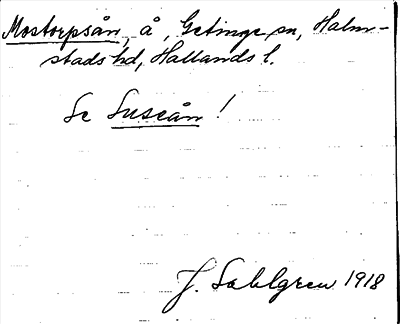 Mostorpsån, å, Getinge sn, Halm-
stads hd, Hallands l.
Se Suseån!
J. Sahlgren 1918